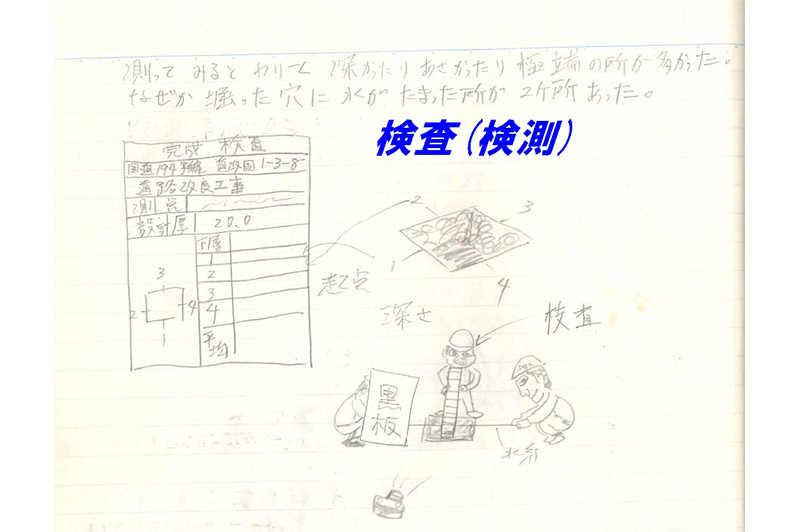 測ってみるとわりーく深かったりあさかったり極端の所が多かった。
なぜか掘った穴に水がたまった所が2ケ所あった。
検査(検測)
完成 検査
国道194号線 道改国1-3-8
道路改良工事
測点
設計厚 20.0
下層
1
2
3
4
平均
3
2
4
1
2
3
1
4
起点
深さ
検査
黒板
水糸